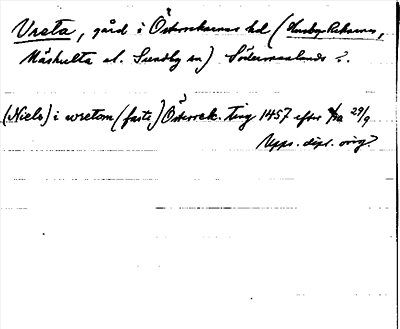 Vreta, gård i Österrekarnes hd (Husby-Rekarne,
Näshulta el. Sundby sn) Södermanlands ?.
(Niels) i wretom (faste) Österrek. ting 1457 efter 29/9
Upps. dipl. orig?